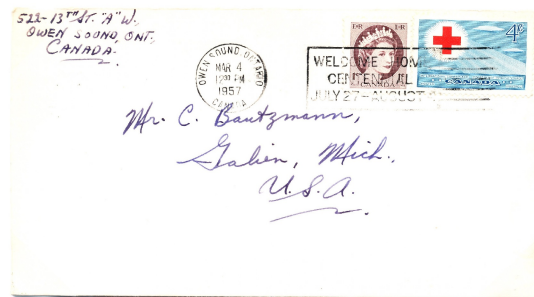 522-13TH ST. "A" W.,
OWEN SOUND, ONT.
CANADA.
OWEN SOUND ONTARIO
MAR 4
12 PM
1957
CANADA
WELCOME HOME
CENTENNIAL
JULY 27 - AUGUST
CANADA
4¢
CANADA
Mr. C. Bautzmann,
Galien, Mich.
U.S.A.